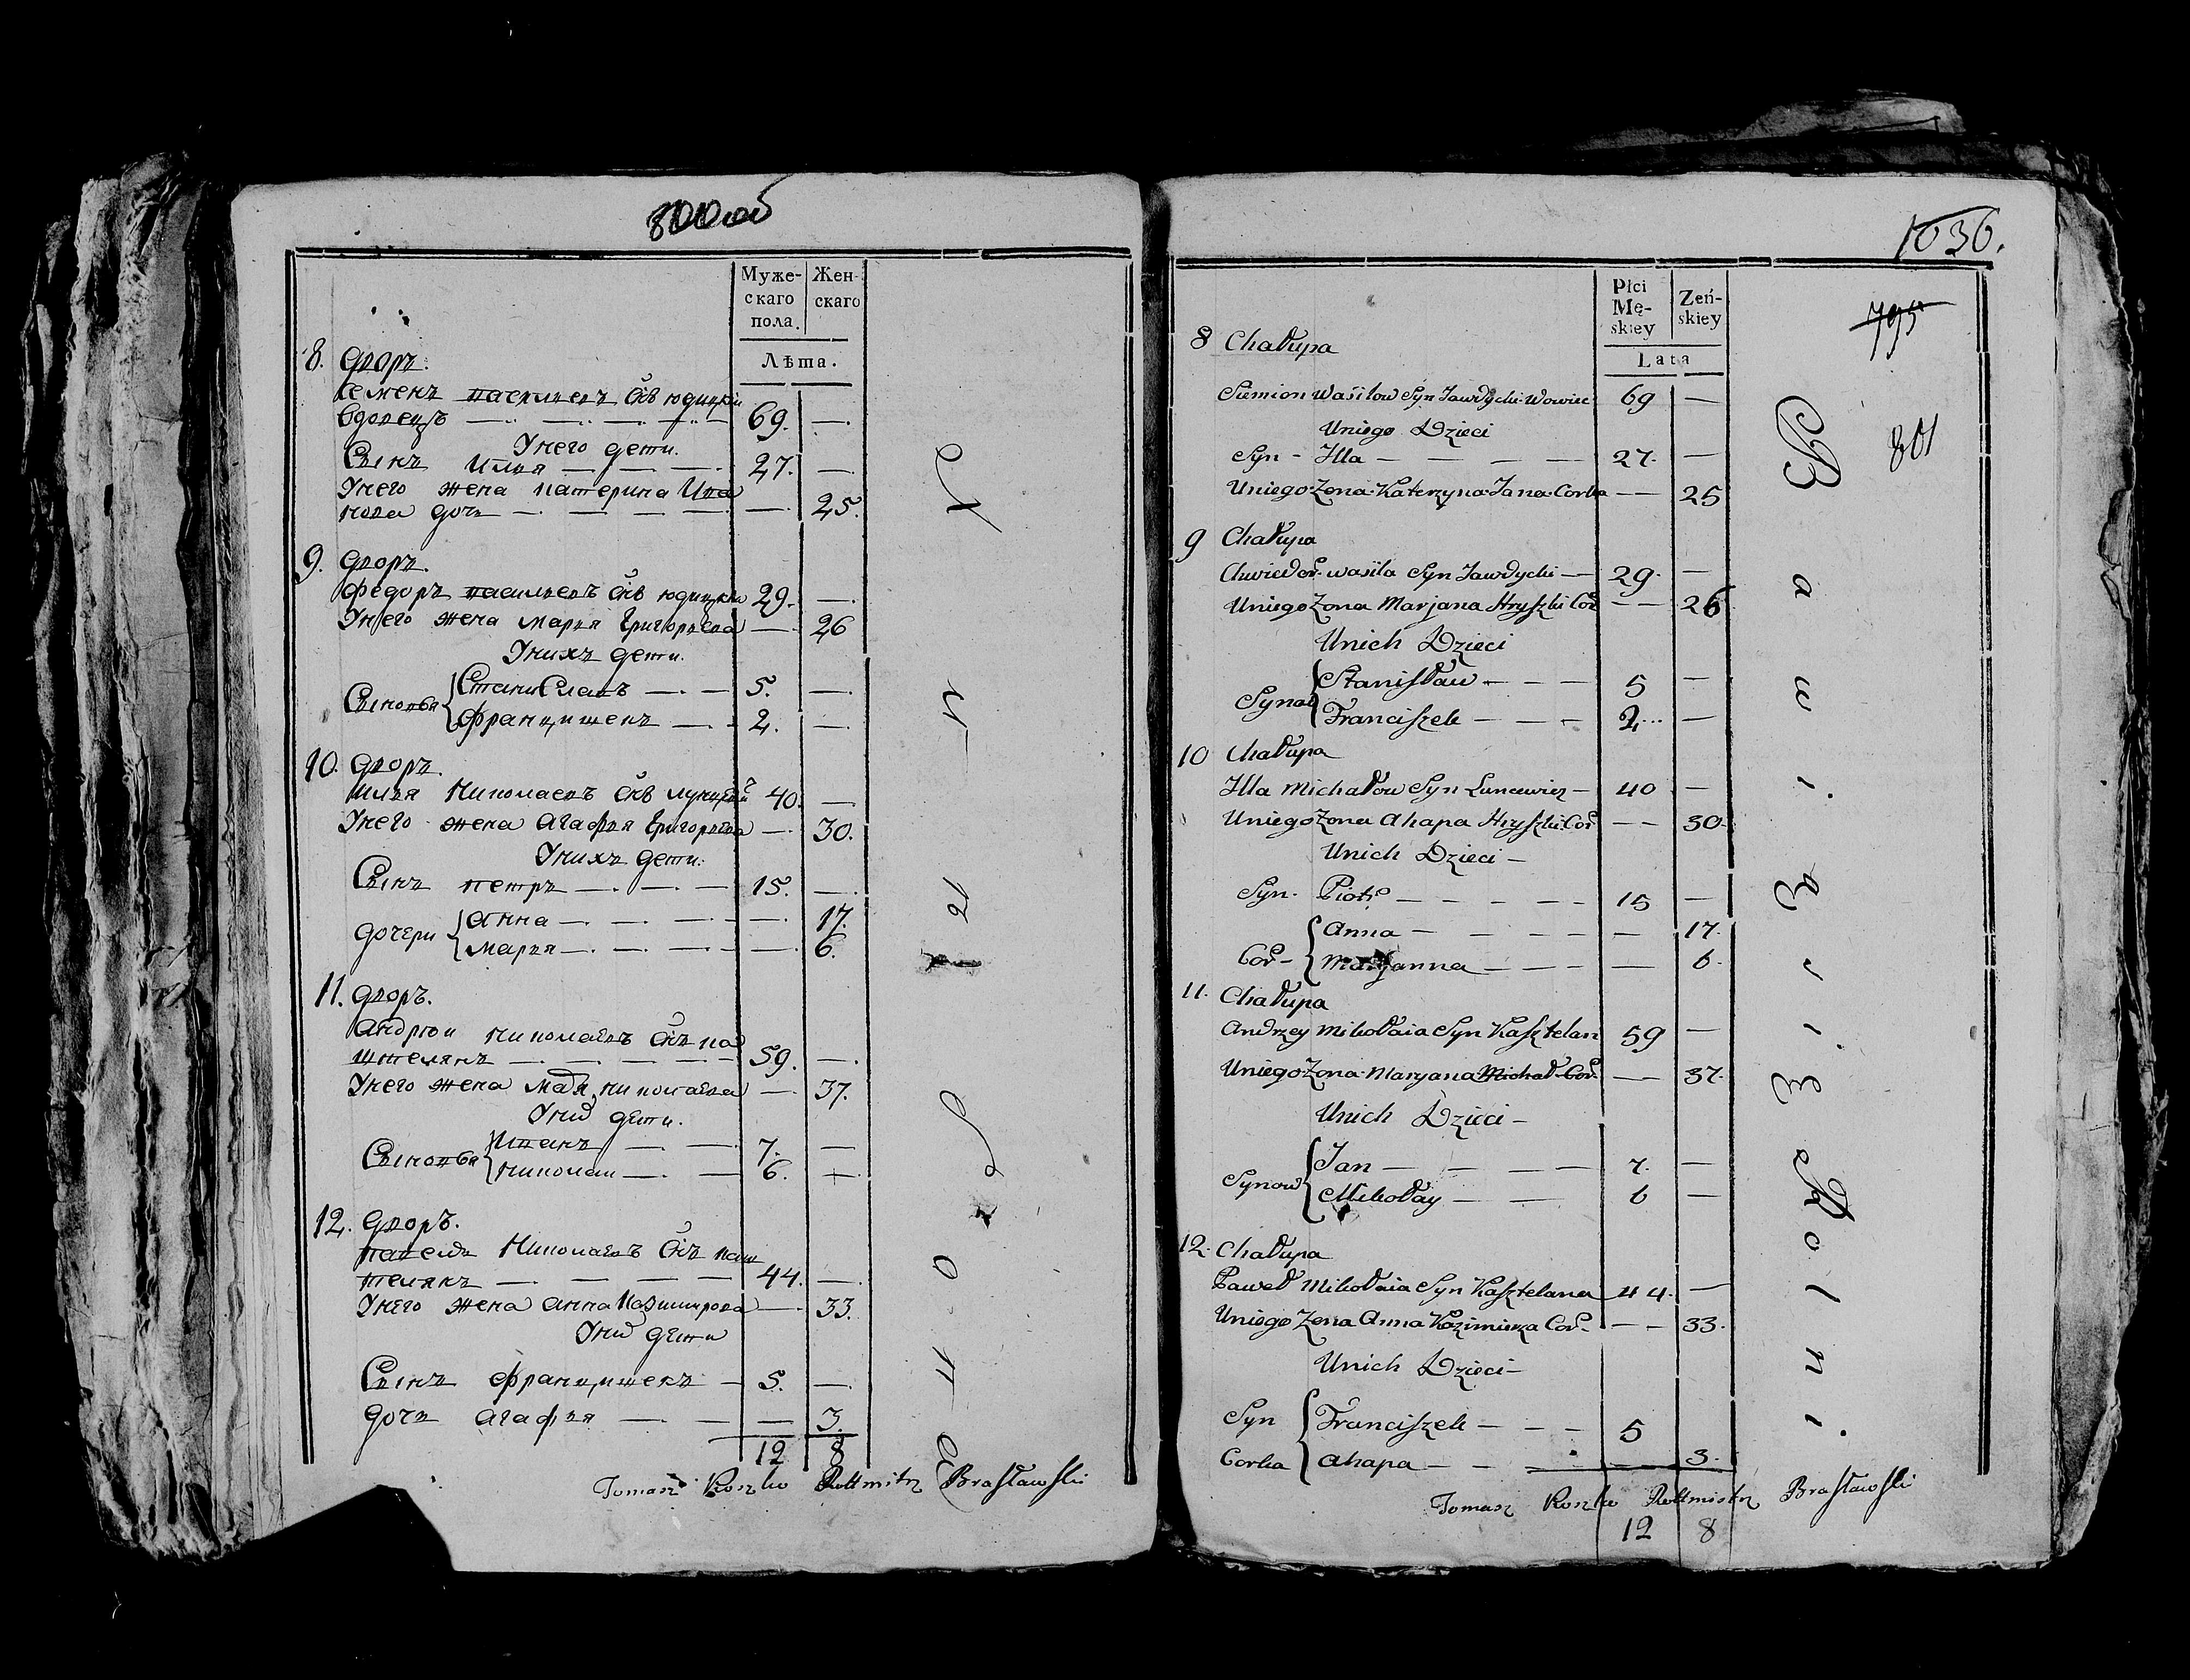 800 об
Муже-
скаго
пола.
Жен-
скаго
Лѣта.
8. Дворъ.
Семенъ Васильевъ Сынъ юдицкій
Вдовецъ — 69. —
У него дети.
Сынъ Илья — 27. —
У него жена Катерина Ива
нова дочь — — 25.
9. Дворъ.
Федоръ Васильевъ Сынъ юдицкій 29. —
У него жена Марья Григорьева — 26
У нихъ дети.
Сыновья Станиславъ — 5. —
Францишекъ — 2. —
10. Дворъ.
Илья Николаевъ Сынъ 40. —
У него жена Агафья Григорьева — 30.
У нихъ дети.
Сынъ Петръ — 15. —
Дочери Анна — — 17.
Марья — — 6.
11. Дворъ.
Андрюй Николаевъ Сынъ Ка
штелянъ — 59. —
У него жена Николаева — 37.
У них дети.
Сыновья Иванъ — 7. —
Николай — 6. —
12. Дворъ.
Павелъ Николаевъ Сынъ Каш
телянъ — 44. —
У него жена Анна Казимирова — 33.
У них дети
Сынъ Францишекъ — 5. —
Дочь Агафья — — 3.
12 8
Tomasz Roszko Rottmistrz Brasławski
1036.
795
801
Płci
Mę-
skiey
Zeń-
skiey
Lata
8 Chałupa
Siemion Wasilow Syn Jawdycki Wowiec 69 —
Uniego Dzieci
Syn - Illa — 27. —
Uniego Zona Katerzyna Jana Corka — 25
9 Chałupa
Chwiedor Wasila Syn Jawdycki — 29. —
Uniego Zona Marjana Hryszki Cor — 26
Unich Dzieci
Synow Stanisław — 5 —
Franciszek — 2 —
10 Chałupa
Illa Michałow Syn Luncewicz — 40 —
Uniego Zona Ahapa Hryszki Cor — 30.
Unich Dzieci —
Syn. Piotr — 15 —
Cor - Anna — — 17.
Maryanna — — 6.
11. Chałupa
Andrzey Mikołaia Syn Kasztelan 59 —
Uniego Zona Maryana Michał Cor. — 37.
Unich Dzieci —
Synow Jan — 7. —
Mikołay — 6 —
12. Chałupa
Paweł Mikołaia Syn Kasztelana 44. —
Uniego Zona Anna Kazimierza Cor — 33.
Unich Dzieci —
Syn Franciszek — 5
Corka Ahapa — 3.
Tomasz Roszko Rottmistrz Brasławski
12 8